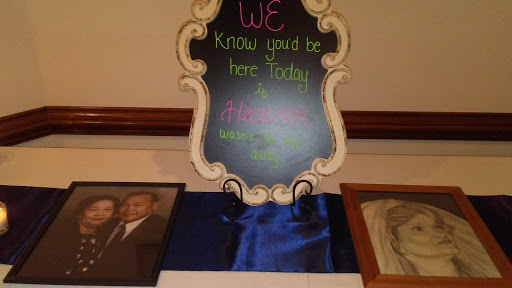 WE
Know you'd be
here Today
if
Heaven
wasn't so far
away